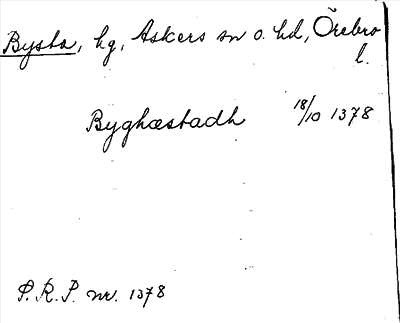 Bysta, hg, Askers sn o. hd, Örebro
l.
Byghæstadh 18/10 1378
P. R. P. nr. 1378